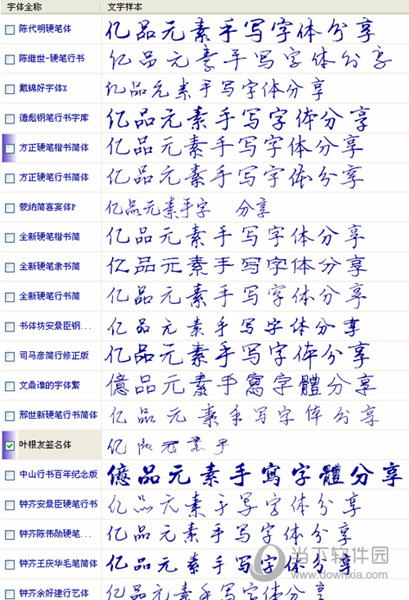 字体全称 文字样本
陈代明硬笔体 亿品元素手写字体分享
陈继世-硬笔行书 亿品元素手写字体分享
戴锦好字体X 亿品元素手写字体分享
德彪钢笔行书字库 亿品元素手写字体分享
方正硬笔楷书简体 亿品元素手写字体分享
方正硬笔行书简体 亿品元素手写字体分享
蒙纳简喜宴体P 亿品元素手字 分享
全新硬笔楷书简 亿品元素手写字体分享
全新硬笔隶书简 亿品元素手写字体分享
全新硬笔行书简 亿品元素手写字体分享
书体坊安景臣钢... 亿品元素手写字体分享
司马彦简行修正版 亿品元素手写字体分享
文鼎谁的字体繁 億品元素手寫字體分享
邢世新硬笔行书简体 亿品元素手写字体分享
叶根友签名体 亿品元素手
中山行书百年纪念版 億品元素手寫字體分享
钟齐安景臣硬笔行书 亿品元素手写字体分享
钟齐陈伟勋硬笔... 亿品元素手写字体分享
钟齐王庆华毛笔简体 亿品元素手写字体分享
钟齐余好建行艺体 亿品元素手写字体分享
当下软件园
www.downxia.com